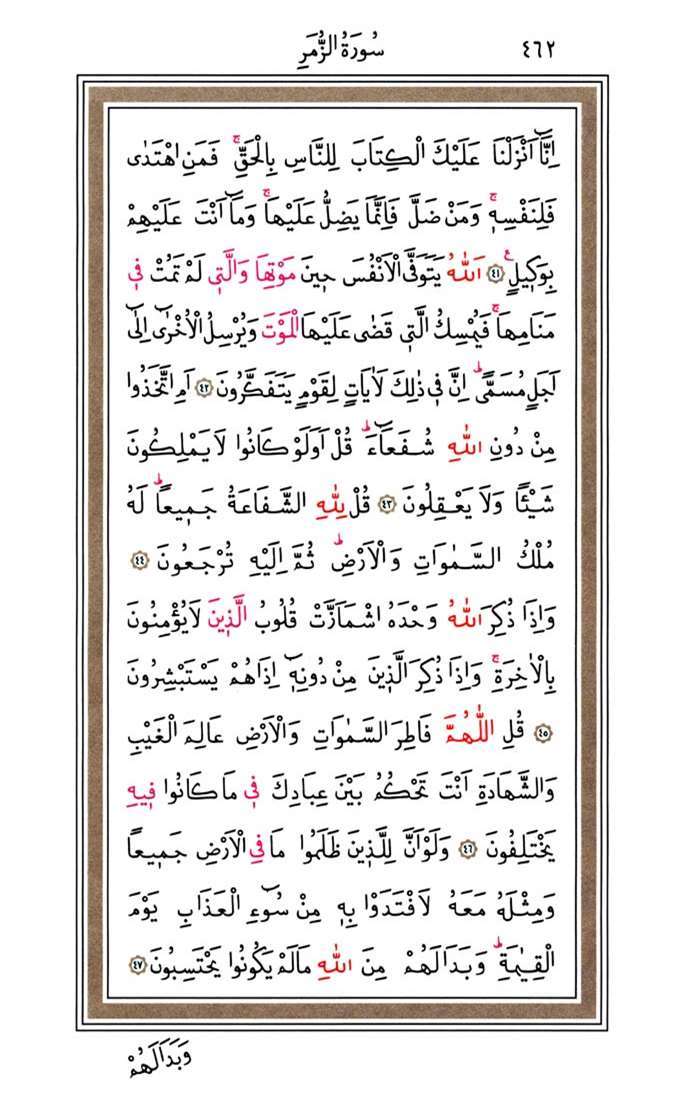 سُورَةُ الزُّمَرِ ٤٦٢
اِنَّٓا اَنْزَلْنَا عَلَيْكَ الْكِتَابَ لِلنَّاسِ بِالْحَقِّۚ فَمَنِ اهْتَدٰى
فَلِنَفْسِه۪ۚ وَمَنْ ضَلَّ فَاِنَّمَا يَضِلُّ عَلَيْهَاۚ وَمَٓا اَنْتَ عَلَيْهِمْ
بِوَك۪يلٍ۟ ﴿٤١﴾ اَللّٰهُ يَتَوَفَّى الْاَنْفُسَ ح۪ينَ مَوْتِهَا وَالَّت۪ي لَمْ تَمُتْ ف۪ي
مَنَامِهَاۚ فَيُمْسِكُ الَّت۪ي قَضٰى عَلَيْهَا الْمَوْتَ وَيُرْسِلُ الْاُخْرٰٓى اِلٰٓى
اَجَلٍ مُسَمًّىۜ اِنَّ ف۪ي ذٰلِكَ لَاٰيَاتٍ لِقَوْمٍ يَتَفَكَّرُونَ ﴿٤٢﴾ اَمِ اتَّخَذُوا
مِنْ دُونِ اللّٰهِ شُفَعَٓاءَۜ قُلْ اَوَلَوْ كَانُوا لَا يَمْلِكُونَ
شَيْـًٔا وَلَا يَعْقِلُونَ ﴿٤٣﴾ قُلْ لِلّٰهِ الشَّفَاعَةُ جَم۪يعًاۜ لَهُ
مُلْكُ السَّمٰوَاتِ وَالْاَرْضِۜ ثُمَّ اِلَيْهِ تُرْجَعُونَ ﴿٤٤﴾
وَاِذَا ذُكِرَ اللّٰهُ وَحْدَهُ اشْمَاَزَّتْ قُلُوبُ الَّذ۪ينَ لَا يُؤْمِنُونَ
بِالْاٰخِرَةِۚ وَاِذَا ذُكِرَ الَّذ۪ينَ مِنْ دُونِه۪ٓ اِذَا هُمْ يَسْتَبْشِرُونَ
﴿٤٥﴾ قُلِ اللّٰهُمَّ فَاطِرَ السَّمٰوَاتِ وَالْاَرْضِ عَالِمَ الْغَيْبِ
وَالشَّهَادَةِ اَنْتَ تَحْكُمُ بَيْنَ عِبَادِكَ ف۪ي مَا كَانُوا ف۪يهِ
يَخْتَلِفُونَ ﴿٤٦﴾ وَلَوْ اَنَّ لِلَّذ۪ينَ ظَلَمُوا مَا فِي الْاَرْضِ جَم۪يعًا
وَمِثْلَهُ مَعَهُ لَافْتَدَوْا بِه۪ مِنْ سُٓوءِ الْعَذَابِ يَوْمَ
الْقِيٰمَةِۜ وَبَدَا لَهُمْ مِنَ اللّٰهِ مَا لَمْ يَكُونُوا يَحْتَسِبُونَ ﴿٤٧﴾
وَبَدَا لَهُمْ